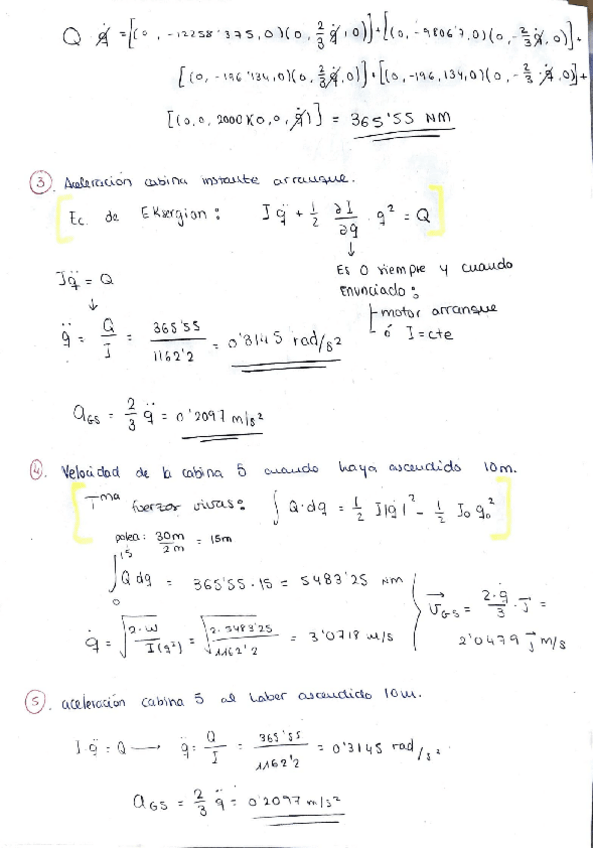 Q · q̇ = [(0, -12258'375, 0)(0, 2/3 q̇, 0)] + [(0, -9806'7, 0)(0, -2/3 q̇, 0)] +
[(0, -196'134, 0)(0, 2/3 q̇, 0)] + [(0, -196,134, 0)(0, -2/3 · q̇, 0)] +
[(0, 0, 2000)(0, 0, q̇)] = 365'55 NM
③. Aceleración cabina instante arranque.
[Ec. de EKsergian: I q̈ + 1/2 ∂I/∂q · q̇² = Q]
↓
Es 0 siempre y cuando
enunciado:
motor arranque
ó I = cte
I q̈ = Q
↓
q̈ = Q/I = 365'55/1162'2 = 0'3145 rad/s²
aG5 = 2/3 q̈ = 0'2097 m/s²
④. Velocidad de la cabina 5 cuando haya ascendido 10m.
[Tma fuerzas vivas: ∫ Q · dq = 1/2 I |q̇|² - 1/2 I₀ q̇₀²]
polea: 30m/2m = 15m
∫₀¹⁵ Q dq = 365'55 · 15 = 5483'25 NM
q̇ = √(2·W/I(q²)) = √(2·5483'25/1162'2) = 3'0718 m/s
vG5 = 2·q̇/3 · j =
2'0479 j m/s
⑤. aceleración cabina 5 al haber ascendido 10m.
I · q̈ = Q → q̈ = Q/I = 365'55/1162'2 = 0'3145 rad/s².
aG5 = 2/3 q̈ = 0'2097 m/s²